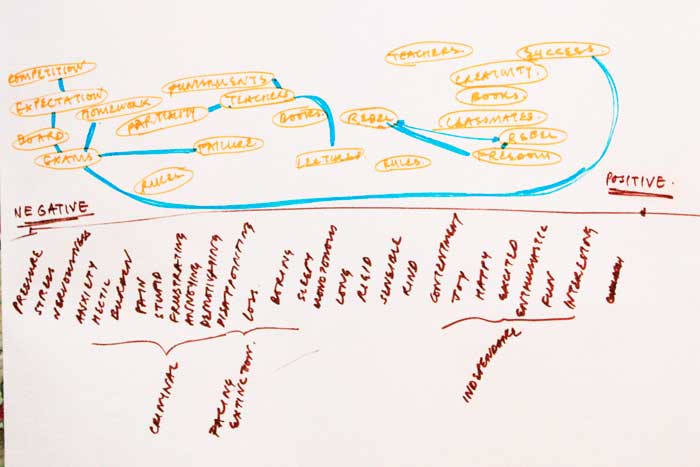 TEACHERS
SUCCESS
COMPETITION
CREATIVITY.
PUNISHMENTS
EXPECTATION
HOMEWORK
TEACHERS
BOOKS.
PARTIALITY
BOOKS
REBEL
CLASSMATES.
BOARD
REBEL
EXAMS
FAILURE
LECTURES
RULES
FREEDOM
RULES
NEGATIVE
POSITIVE.
PRESSURE
STRESS
NERVOUSNESS
ANXIETY
HECTIC
BURDEN
PAIN
STUPID
FRUSTRATING
ANNOYING
DEMOTIVATING
DISAPPOINTING
LOSS.
BORING
SLEEPY
MONOTONOUS
LONG
RIGID
SENSIBLE
KIND
CONTENTMENT
JOY
HAPPY
EXCITED
ENTHUSIASTIC
FUN
INTERESTING
CRIMINAL
FACING
EXTINCTION.